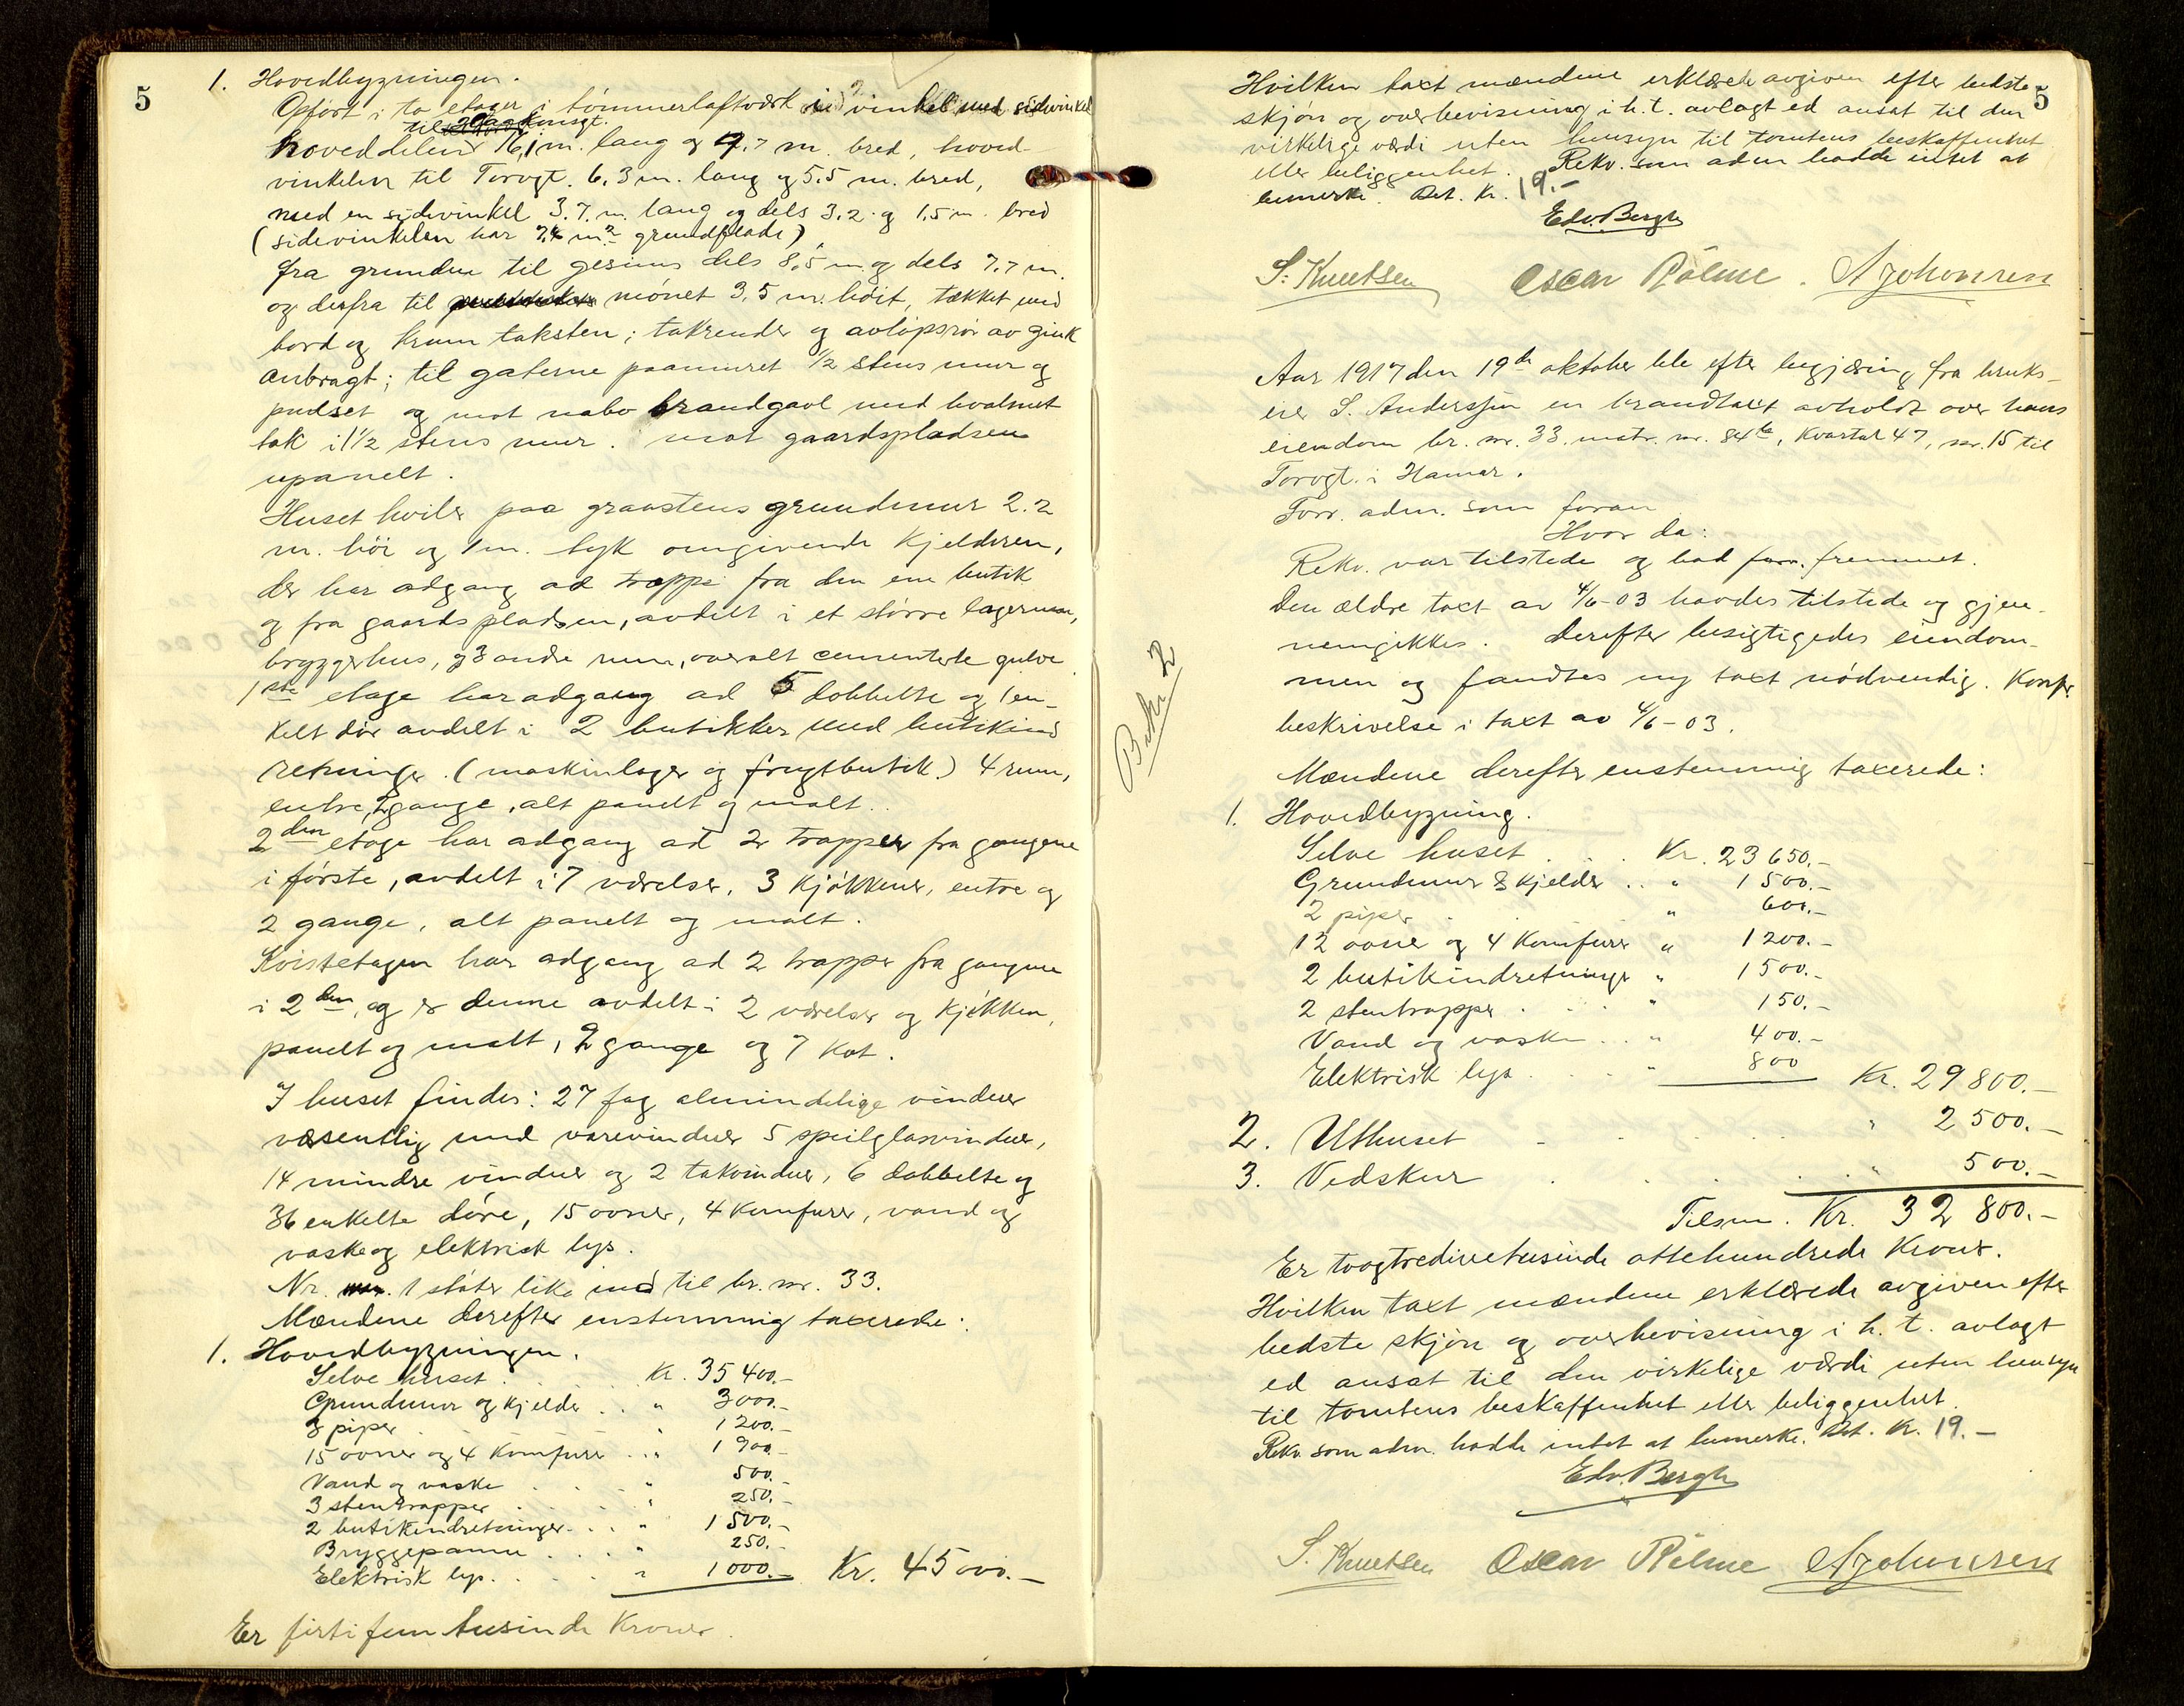 5
1. Hovedbygningen.
Opført i to etager i tømmerlaftværk i 2 vinkel med sidevinkel
til Grønnegt.
hoveddelen 16,1 m. lang og 9.7 m. bred, hoved-
vinkelen til Torvgt. 6,3 m. lang og 5,5 m. bred,
med en sidevinkel 3.7. m. lang og dels 3.2. og 1,5 m. bred
(sidevinkelen har 7,4 m² grundflade),
fra grunden til gesims dels 8,5 m. og dels 7.7 m.
og derfra til mønet 3,5 m. høit, tækket med
bord og krum taksten; takrender og avløpsrør av zink
anbragt; til gaterne paamuret 1/2 stens mur og
pudset og mot nabo brandgavl med hvalmet
tak i 1 1/2 stens mur. mot gaardspladsen
upanelt.
Huset hviler paa graastens grundmur 2.2
m. høi og 1 m. tyk omgivende kjelderen,
der har adgang ad trappe fra den ene butik
og fra gaardspladsen, avdelt i et større lagerrum,
bryggerhus, og 3 andre rum, overalt cementerte gulve
1ste etage har adgang ad 5 dobbelte og 1 en-
kelt dør avdelt i 2 butikker med butikind
retninger. (maskinlager og frugtbutik) 4 rum,
entre, 2 gange, alt panelt og malt.
2den etage har adgang ad 2 trapper fra gangene
i første, avdelt i 7 værelser, 3 kjøkkener, entre og
2 gange, alt panelt og malt.
Kvistetagen har adgang ad 2 trapper fra gangene
i 2den, og er denne avdelt i 2 værelser og kjøkken,
panelt og malt, 2 gange og 7 kot.
I huset findes: 27 fag almindelige vinduer
væsentlig med varevinduer 5 speilglasvinduer,
14 mindre vinduer og 2 takvinduer, 6 dobbelte og
36 enkelte døre, 15 ovner, 4 komfurer, vand og
vaske og elektrisk lys.
Nr. 1 støter like ind til br. nr. 33.
Mændene derefter enstemmig taxerede:
1. Hovedbygningen.
Selve huset . . . Kr. 35400.-
Grundmur og kjelder . . " 3000.-
3 piper . . " 1200.-
15 ovner og 4 komfurer . . " 1900.-
Vand og vaske . . . " 500.-
3 stentrapper . . . " 250.-
2 butikindretninger . . . " 1500.-
Bryggepanne . . . " 250.-
Elektrisk lys . . . " 1000.- Kr. 45000.-
Er firtifem tusinde Kroner.
5
Hvilken taxt mændene erklærede avgiven efter bedste
skjøn og overbevisning i h. t. avlagt ed ansat til den
virkelige værdi uten hensyn til tomtens beskaffenhet
eller beliggenhet. Rekv. som adm. hadde intet at
bemerke. Bet. Kr. 19.-
Edv. Bergh
S. Knutsen Oscar Pölme. A Johansen
Aar 1917 den 19de oktober ble efter begjæring fra bruks-
eier S. Anderssen en brandtaxt avholdt over hans
eiendom br. nr. 33. matr. nr. 84 b, Kvartal 47, nr. 15 til
Torvgt. i Hamar.
Forr. adm. som foran
Hvor da:
Rekv. var tilstede og bad forr. fremmet.
Den ældre taxt av 4/6-03 havdes tilstede og gjen-
nemgikkes. Derefter besigtigedes eiendom-
men og fandtes ny taxt nødvendig. Konfr.
beskrivelse i taxt av 4/6-03.
Mændene derefter enstemmig taxerede:
1. Hovedbygning.
Selve huset . . . Kr. 23650.-
Grundmur & kjelder . . " 1500.-
2 piper . . " 600.-
12 ovner og 4 komfurer " 1200.-
2 butikindretninger " 1500.-
2 stentrapper . . . " 150.-
Vand og vaske . . " 400.-
Elektrisk lys . . . " 800 Kr. 29800.-
2. Uthuset . . . " 2500.-
3. Vedskur . . . " 500.-
Tilsm. Kr. 32800.-
Er toogtredivetusinde ottehundrede Kroner.
Hvilken taxt mændene erklærede avgiven efter
bedste skjøn og overbevisning i h. t. avlagt
ed ansat til den virkelige værdi uten hensyn
til tomtens beskaffenhet eller beliggenhet.
Rekv. som adm. hadde intet at bemerke. Bet. Kr. 19.-
Edv. Bergh
S. Knutsen Oscar Pölme A Johansen